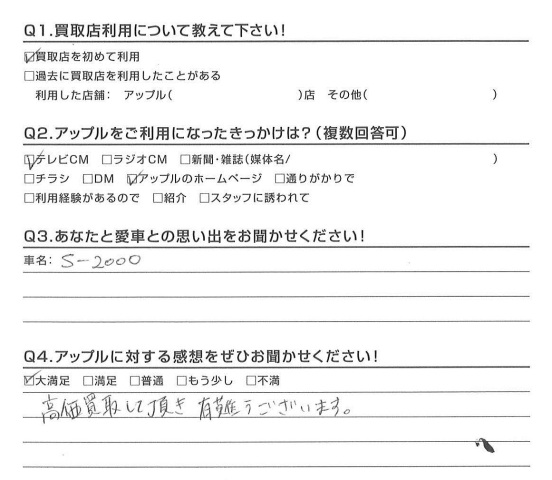 Q1.買取店利用について教えて下さい!
☑買取店を初めて利用
□過去に買取店を利用したことがある
利用した店舗: アップル( )店 その他( )
Q2.アップルをご利用になったきっかけは?(複数回答可)
☑テレビCM □ラジオCM □新聞・雑誌(媒体名/ )
□チラシ □DM ☑アップルのホームページ □通りがかりで
□利用経験があるので □紹介 □スタッフに誘われて
Q3.あなたと愛車との思い出をお聞かせください!
車名: S-2000
Q4.アップルに対する感想をぜひお聞かせください!
☑大満足 □満足 □普通 □もう少し □不満
高価買取して頂き 有難うございます。